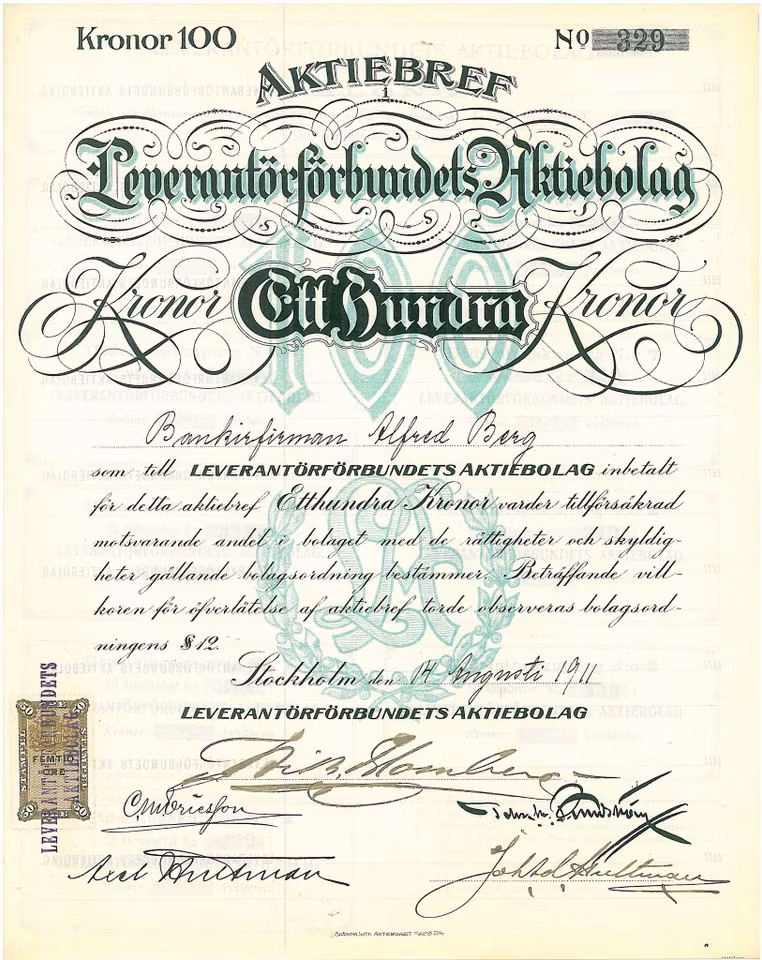 Kronor 100
No 329
AKTIEBREF
i
Leverantörförbundets Aktiebolag
100
Kronor Ett Hundra Kronor
Bankirfirman Alfred Berg
som till LEVERANTÖRFÖRBUNDETS AKTIEBOLAG inbetalt
för detta aktiebref Etthundra Kronor varder tillförsäkrad
motsvarande andel i bolaget med de rättigheter och skyldig-
heter gällande bolagsordning bestämmer. Beträffande vill-
koren för öfverlåtelse af aktiebref torde observeras bolagsord-
ningens § 12.
Stockholm den 14 Augusti 1911
LEVERANTÖRFÖRBUNDETS AKTIEBOLAG
LEVERANTÖRFÖRBUNDETS
AKTIEBOLAG
STÄMPEL
FEMTIO
ÖRE
50 50
Axel Hultman
Joh Ad Hultman